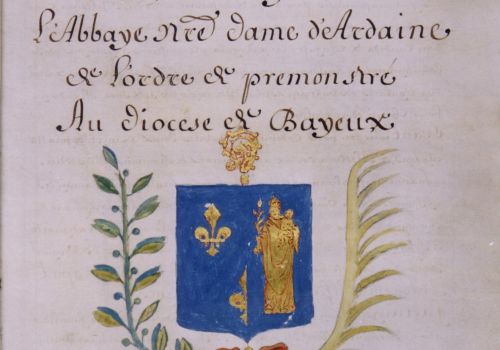 L'Abbaye Nre dame d'Ardaine
de L'ordre de premonstré
Au diocese de Bayeux